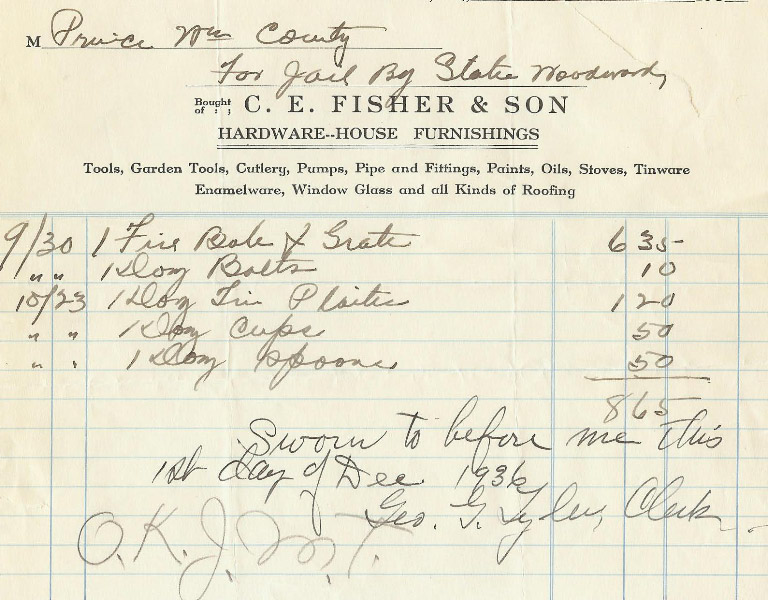 M Prince Wm County
For Jail By State Woodward,
Bought of : ; C. E. FISHER & SON
HARDWARE--HOUSE FURNISHINGS
Tools, Garden Tools, Cutlery, Pumps, Pipe and Fittings, Paints, Oils, Stoves, Tinware
Enamelware, Window Glass and all Kinds of Roofing
9/30 1 Fire Bole & Grate 6 35
" " 1 Doz Bolts 10
10/23 1 Doz Tin Plaites 1 20
" " 1 Doz Cups 50
" " 1 Doz Spoons 50
8 65
Sworn to before me this
1st day of Dec 1936
Geo. G. Tyler, Clerk
O.K. J.M.T.